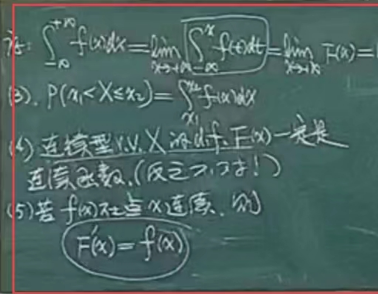 注: ∫_{-∞}^{+∞} f(x)dx = lim_{x→+∞} ∫_{-∞}^{x} f(t)dt = lim_{x→+∞} F(x) =
(3). P(x₁<X≤x₂) = ∫_{x₁}^{x₂} f(x)dx
(4) 连续型r.v. X 的 d.f. F(x) 一定是
连续函数. (反之不对!)
(5) 若 f(x) 在点 x 连续, 则
F′(x) = f(x)